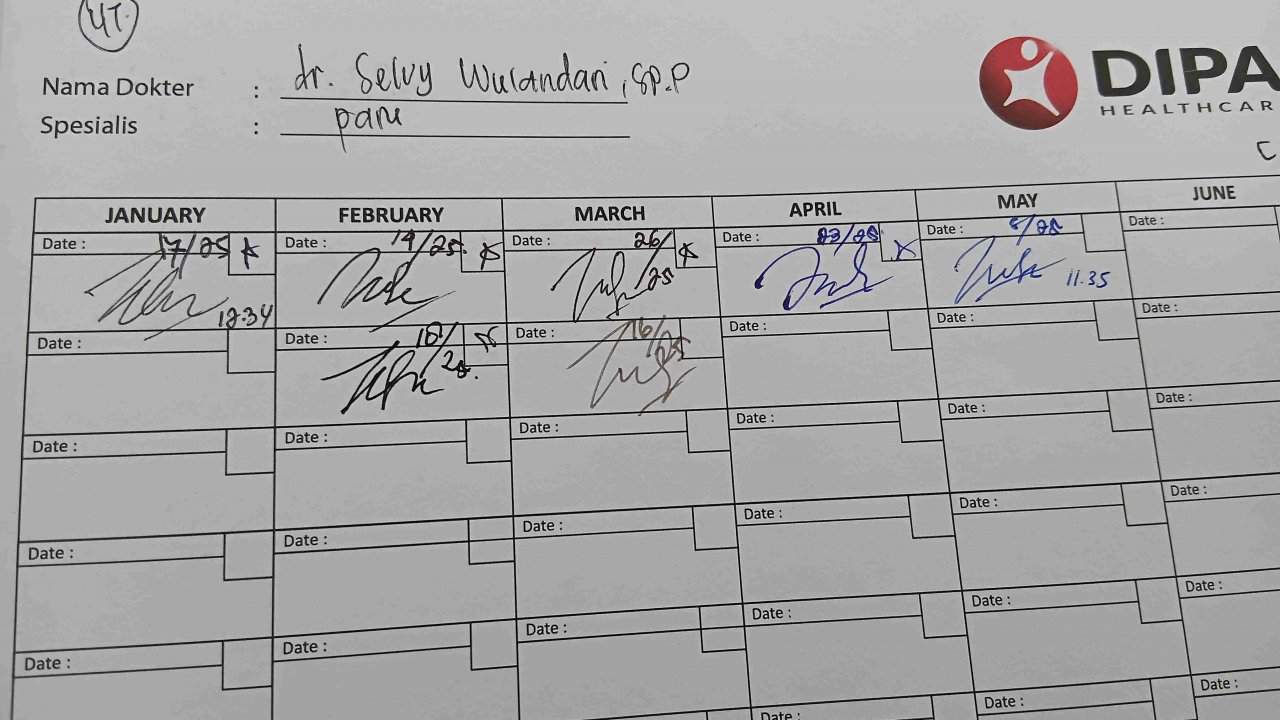 47.
Nama Dokter : dr. Selvy Wulandari, Sp.P
Spesialis : paru
DIPA
HEALTHCAR
JANUARY FEBRUARY MARCH APRIL MAY JUNE
Date : 17/25 Date : 14/25 Date : 26/25 Date : 23/25 Date : 8/25 Date :
12.34 11.35
Date : Date : 18/25. Date : 16/25 Date : Date : Date :
Date : Date : Date : Date : Date : Date :
Date : Date : Date : Date : Date : Date :
Date : Date : Date : Date : Date : Date :
Date : Date : Date :